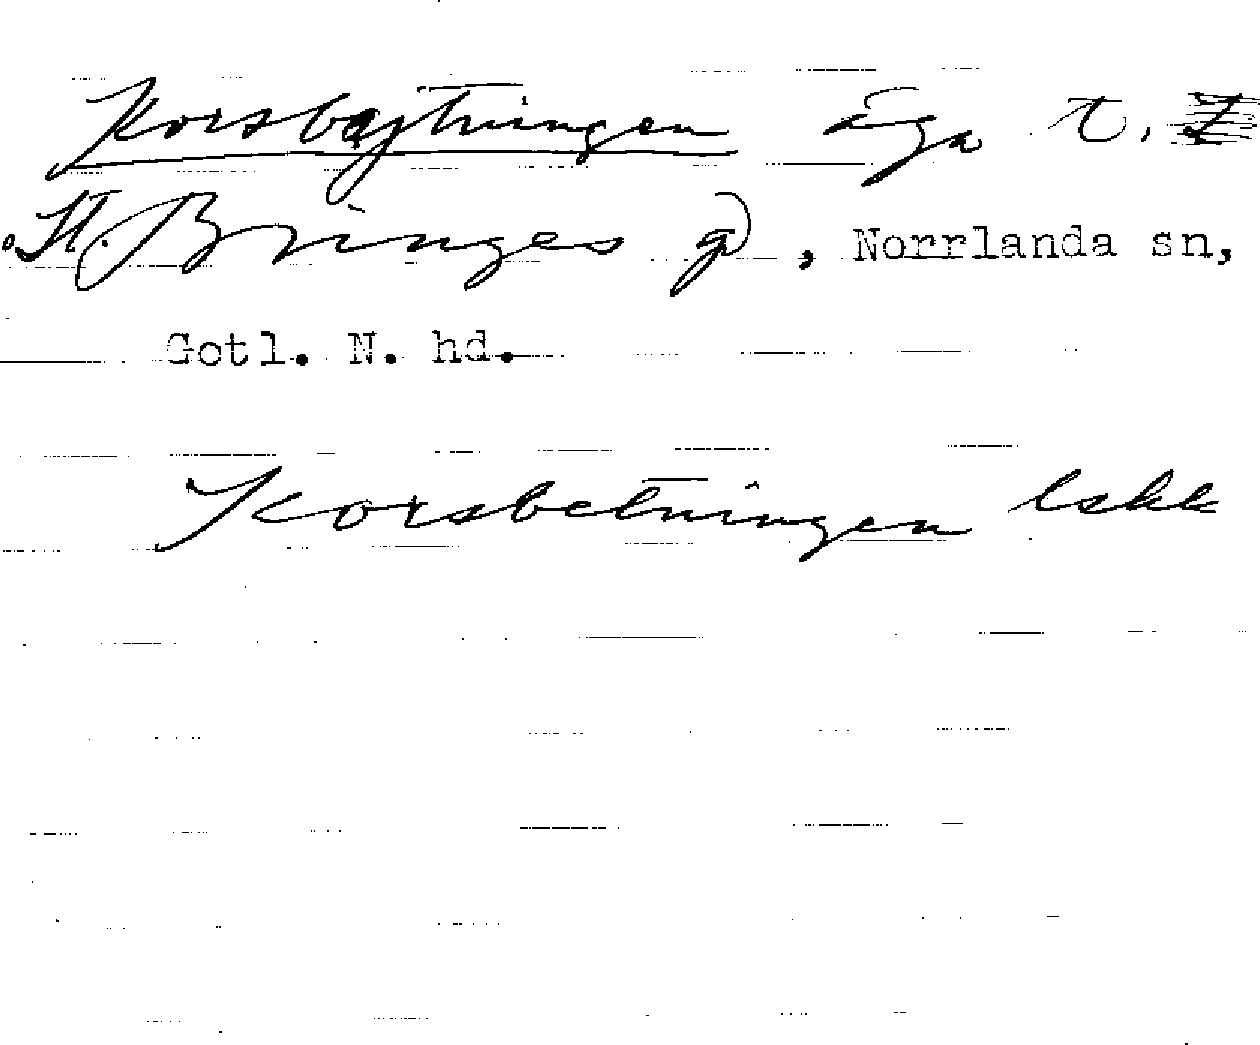 Korsbajtningen äga t.
St. Bringes gd, Norrlanda sn,
Gotl. N. hd.
Korsbetningen lskk